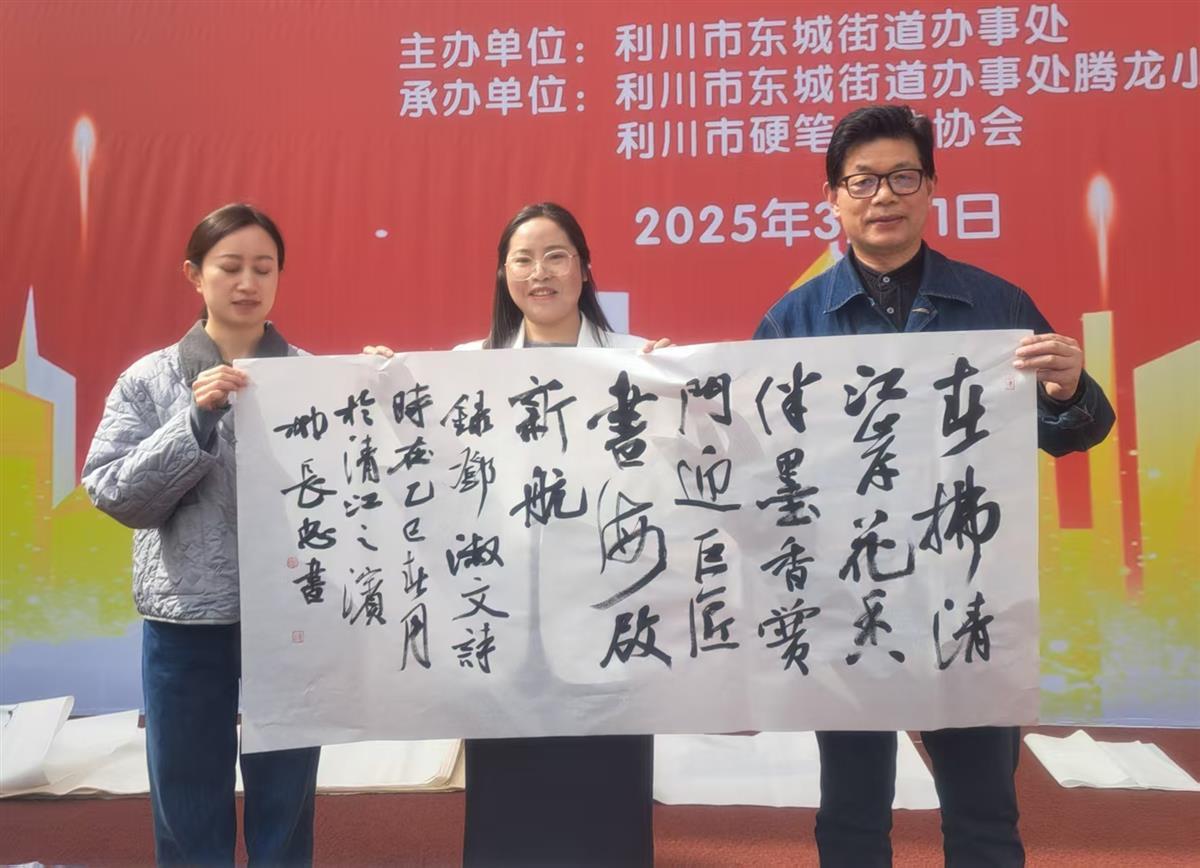 主办单位：利川市东城街道办事处
承办单位：利川市东城街道办事处腾龙小
利川市硬笔 协会
2025年3 1日
春拂清
江岸花香
伴墨香
門迎巨匠
書海啟
新航
錄鄧淑文詩
時在乙巳春月
於清江之濱
柳長忠書